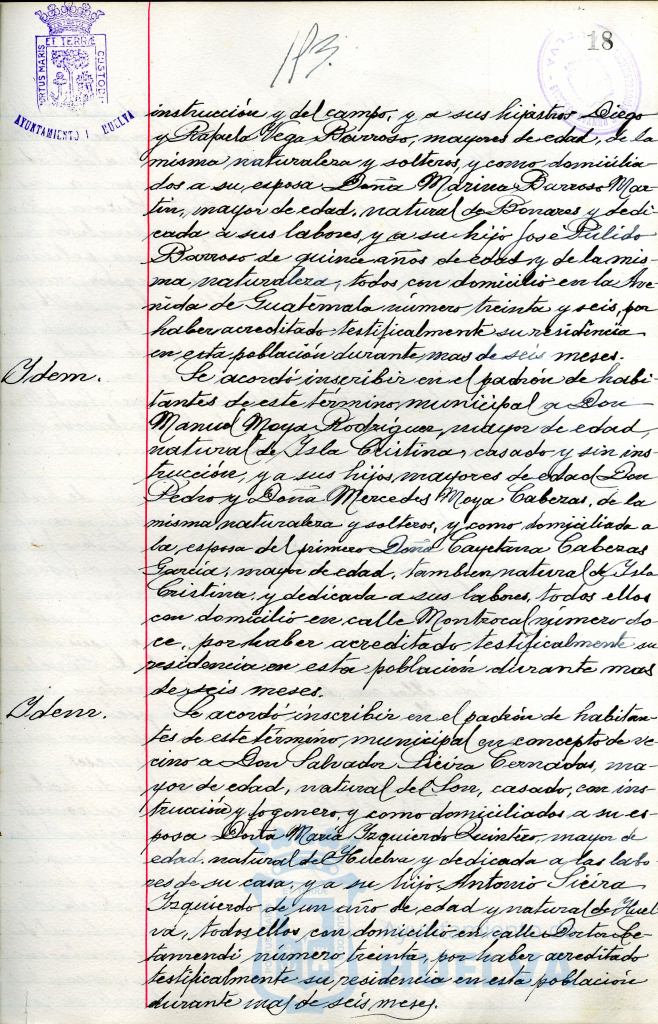 PORTUS MARIS ET TERRÆ CUSTODIA
AYUNTAMIENTO HUELVA
18
instrucción y del campo, y a sus hijastros Diego
y Rafaela Vega Barroso, mayores de edad, de la
misma naturaleza y solteros, y como domicilia-
dos a su esposa Doña Marina Barroso Mar-
tin, mayor de edad, natural de Bonares y dedi-
cada a sus labores, y a su hijo Jose Pulido
Barroso de quince años de edad y de la mis-
ma naturaleza, todos con domicilio en la Ave-
nida de Guatemala número treinta y seis, por
haber acreditado testificalmente su residencia
en esta población durante mas de seis meses.
Idem.
Se acordó inscribir en el padrón de habi-
tantes de este término municipal a Don
Manuel Moya Rodriguez, mayor de edad,
natural de Isla Cristina, casado y sin ins-
trucción, y a sus hijos, mayores de edad Don
Pedro y Doña Mercedes Moya Cabezas, de la
misma naturaleza y solteros, y como domiciliada a
la esposa del primero Doña Cayetana Cabezas
Garcia, mayor de edad, tambien natural de Isla
Cristina, y dedicada a sus labores, todos ellos
con domicilio en calle Montrocal número do-
ce, por haber acreditado testificalmente su
residencia en esta población durante mas
de seis meses.
Idem.
Se acordó inscribir en el padrón de habitan-
tes de este término municipal en concepto de ve-
cino a Don Salvador Sieira Cernadas, ma-
yor de edad, natural de Son, casado, con ins-
trucción y fogonero, y como domiciliados a su es-
posa Doña Maria Izquierdo Quintero, mayor de
edad, natural de Huelva y dedicada a las labo-
res de su casa, y a su hijo Antonio Sieira
Izquierdo de un año de edad y natural de Huel-
va, todos ellos con domicilio en calle Doctor Le-
tamendi número treinta, por haber acreditado
testificalmente su residencia en esta población
durante mas de seis meses.
HUELVA